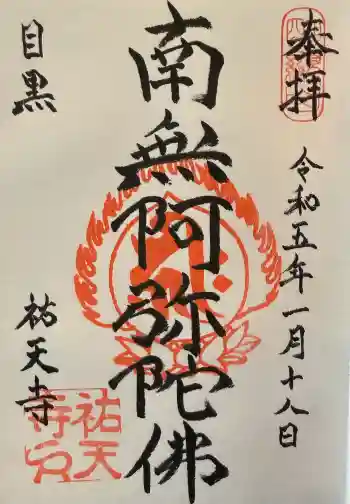 奉拝
令和五年一月十八日
南無阿弥陀佛
目黒
祐天寺